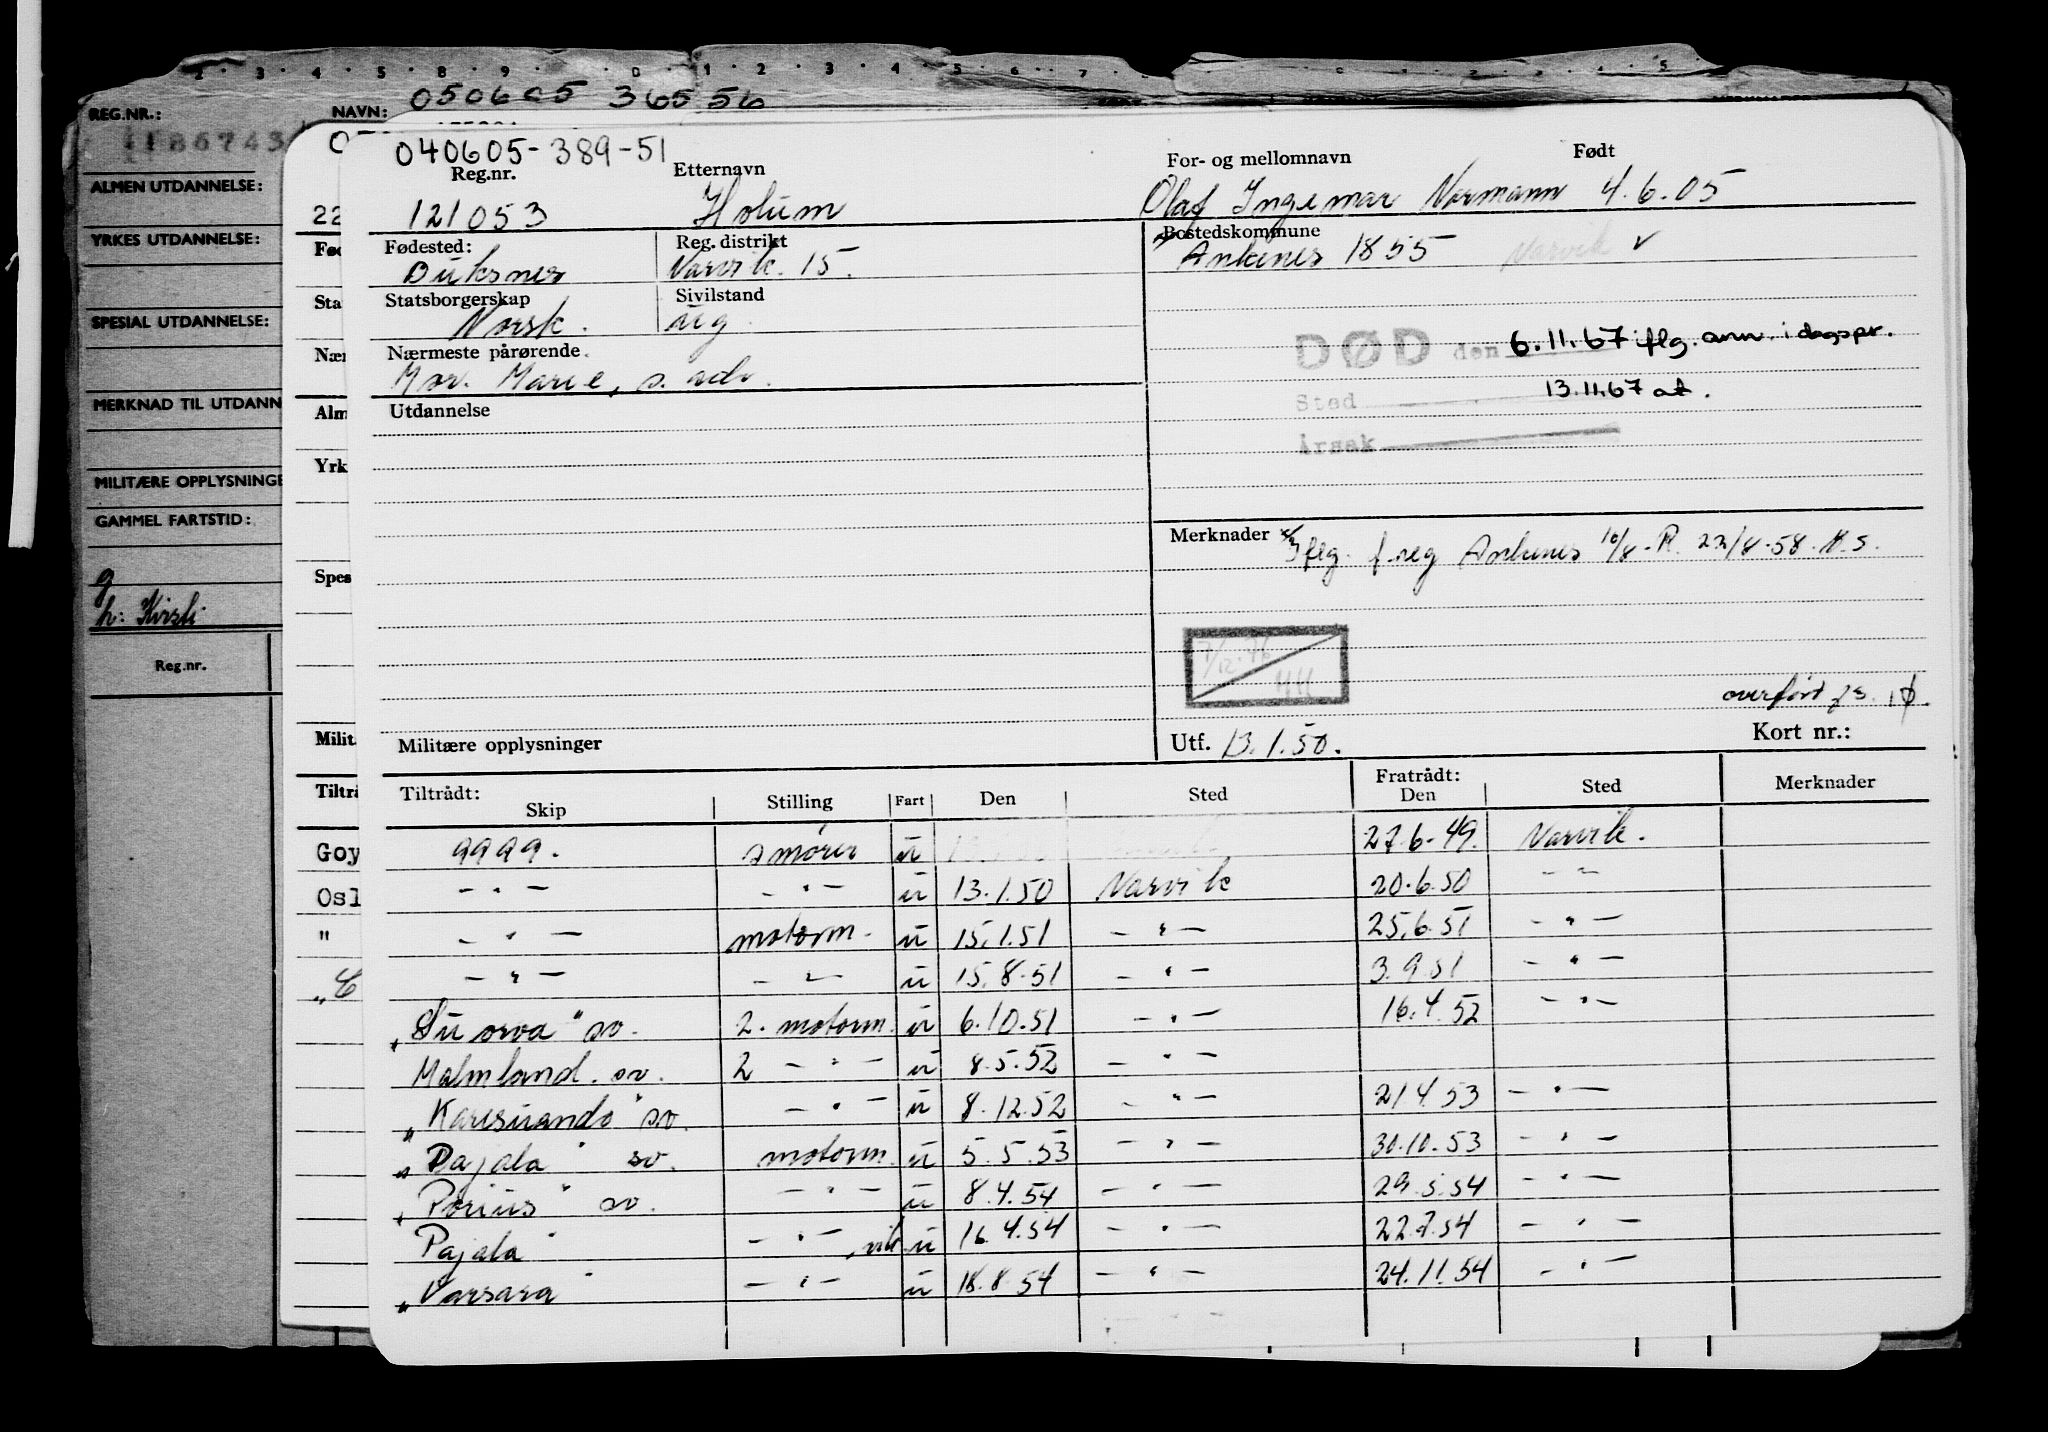 2 3 4 5 8 9 0 1 2 3 4 5 6 7
REG.NR.:
NAVN: 050605 36556
ALMEN UTDANNELSE:
YRKES UTDANNELSE:
SPESIAL UTDANNELSE:
MERKNAD TIL UTDANN
MILITÆRE OPPLYSNINGE
GAMMEL FARTSTID:
g
h: Kirsti
Reg.nr.
22
Fød
Sta
Nær
Alm
Yrk
Spes
Milit.
Tiltrå
Goy
Osl
"
040605-389-51
Reg.nr. Etternavn For- og mellomnavn Født
121053 Holum Olaf Ingemar Normann 4.6.05
Fødested: Reg. distrikt Bostedskommune
Narvik 15. Ankenes 1855 Narvik v
Statsborgerskap Sivilstand
Norsk. ug
DØD den 6.11.67 iflg. ann. i dagspr.
Nærmeste pårørende.
Mor. Marie, s. adr.
Sted 13.11.67 at.
Utdannelse
Årsak
Merknader Iflg. f.reg Ankenes 10/8-R. 22/8-58. K.s.
7/12.76
overført fs.
Militære opplysninger Utf. 13.1.50. Kort nr.:
Tiltrådt: Skip Stilling Fart Den Sted Fratrådt: Den Sted Merknader
9999. smører u 27.6.49. Narvik.
- " - - " - u 13.1.50 Narvik 20.6.50 - " -
- " - motorm. u 15.1.51 - " - 25.6.51 - " -
- " - - " - u 15.8.51 - " - 3.9.51 - " -
"Suorva" sv. 2. motorm. u 6.10.51 - " - 16.4.52 - " -
Malmland. sv. 2 - " - u 8.5.52 - " -
"Karesuando" sv. - " - u 8.12.52 - " - 21.4.53 - " -
"Pajala" sv. motorm. u 5.5.53 - " - 30.10.53 - " -
"Porjus" sv. - " - u 8.4.54 - " - 29.5.54 - " -
Pajala" - " - , vik u 16.4.54 - " - 22.7.54 - " -
"Varsara" - " - u 18.8.54 - " - 24.11.54 - " -